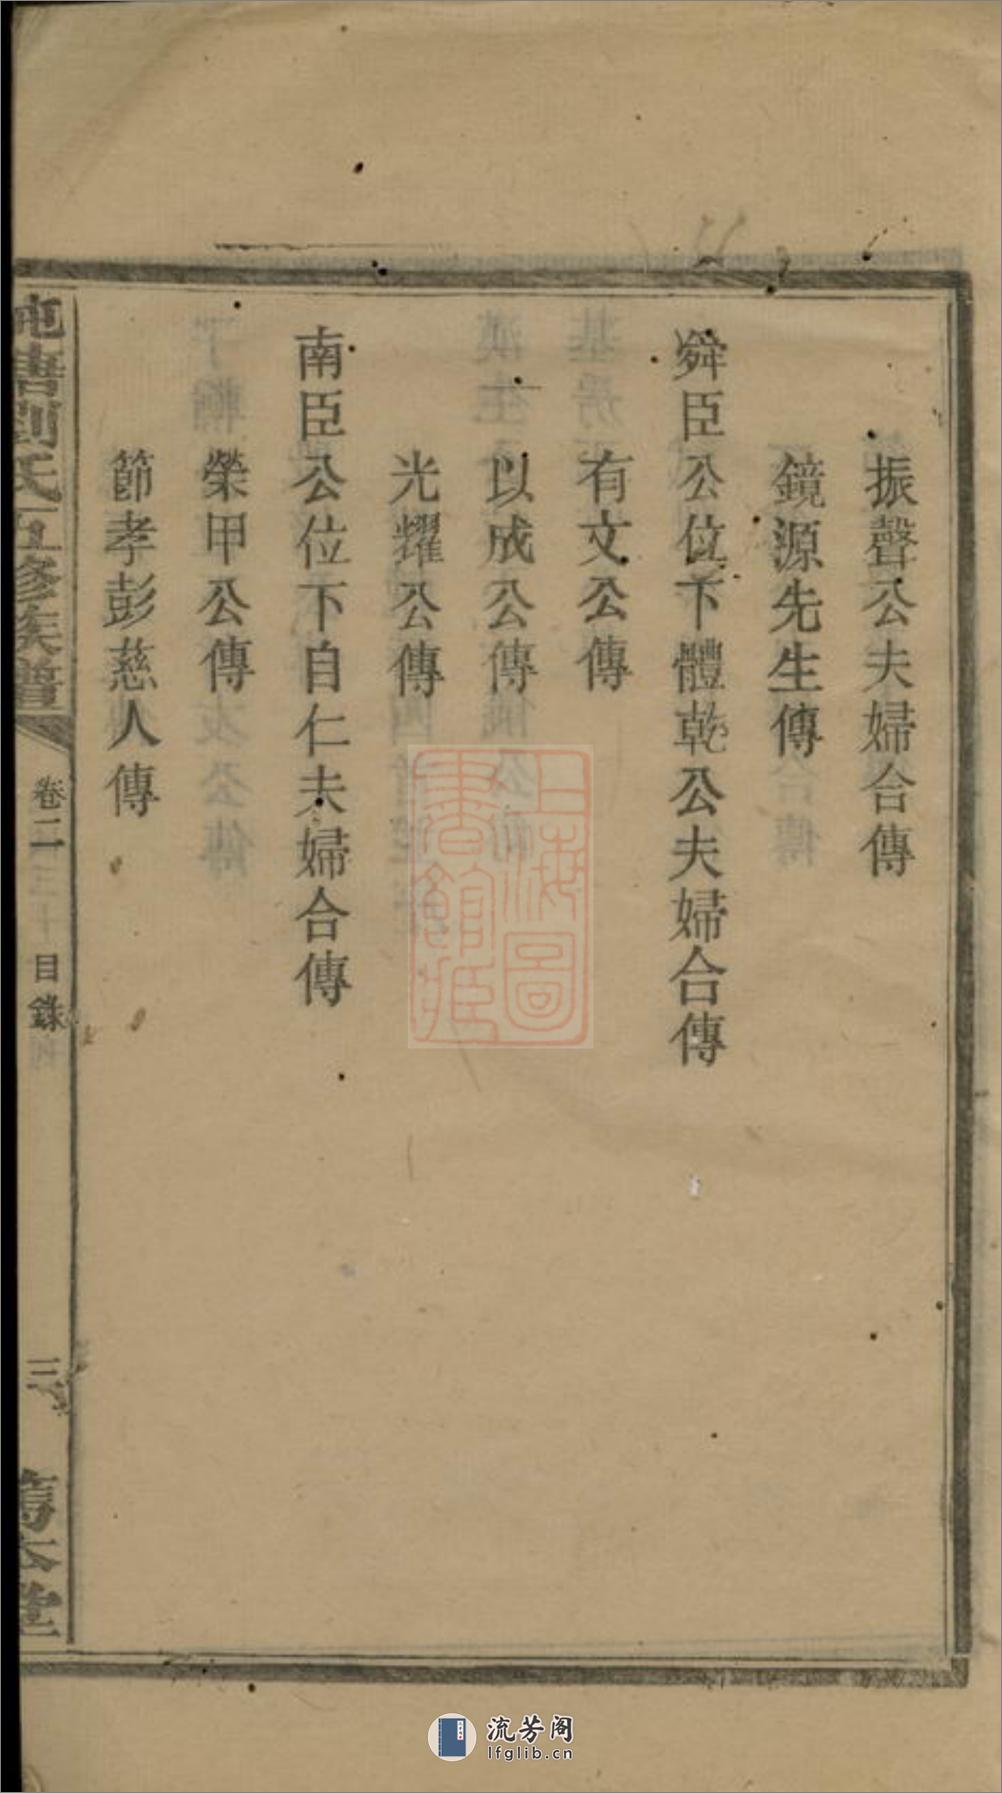 振聲公夫婦合傳
鏡源先生傳
舜臣公位下體乾公夫婦合傳
有文公傳
以成公傳
光耀公傳
南臣公位下自仁夫婦合傳
榮甲公傳
節孝彭慈人傳
劉氏五修族譜
卷二
目錄
三
上海圖
書館藏
流芳阁
lfglib.cn